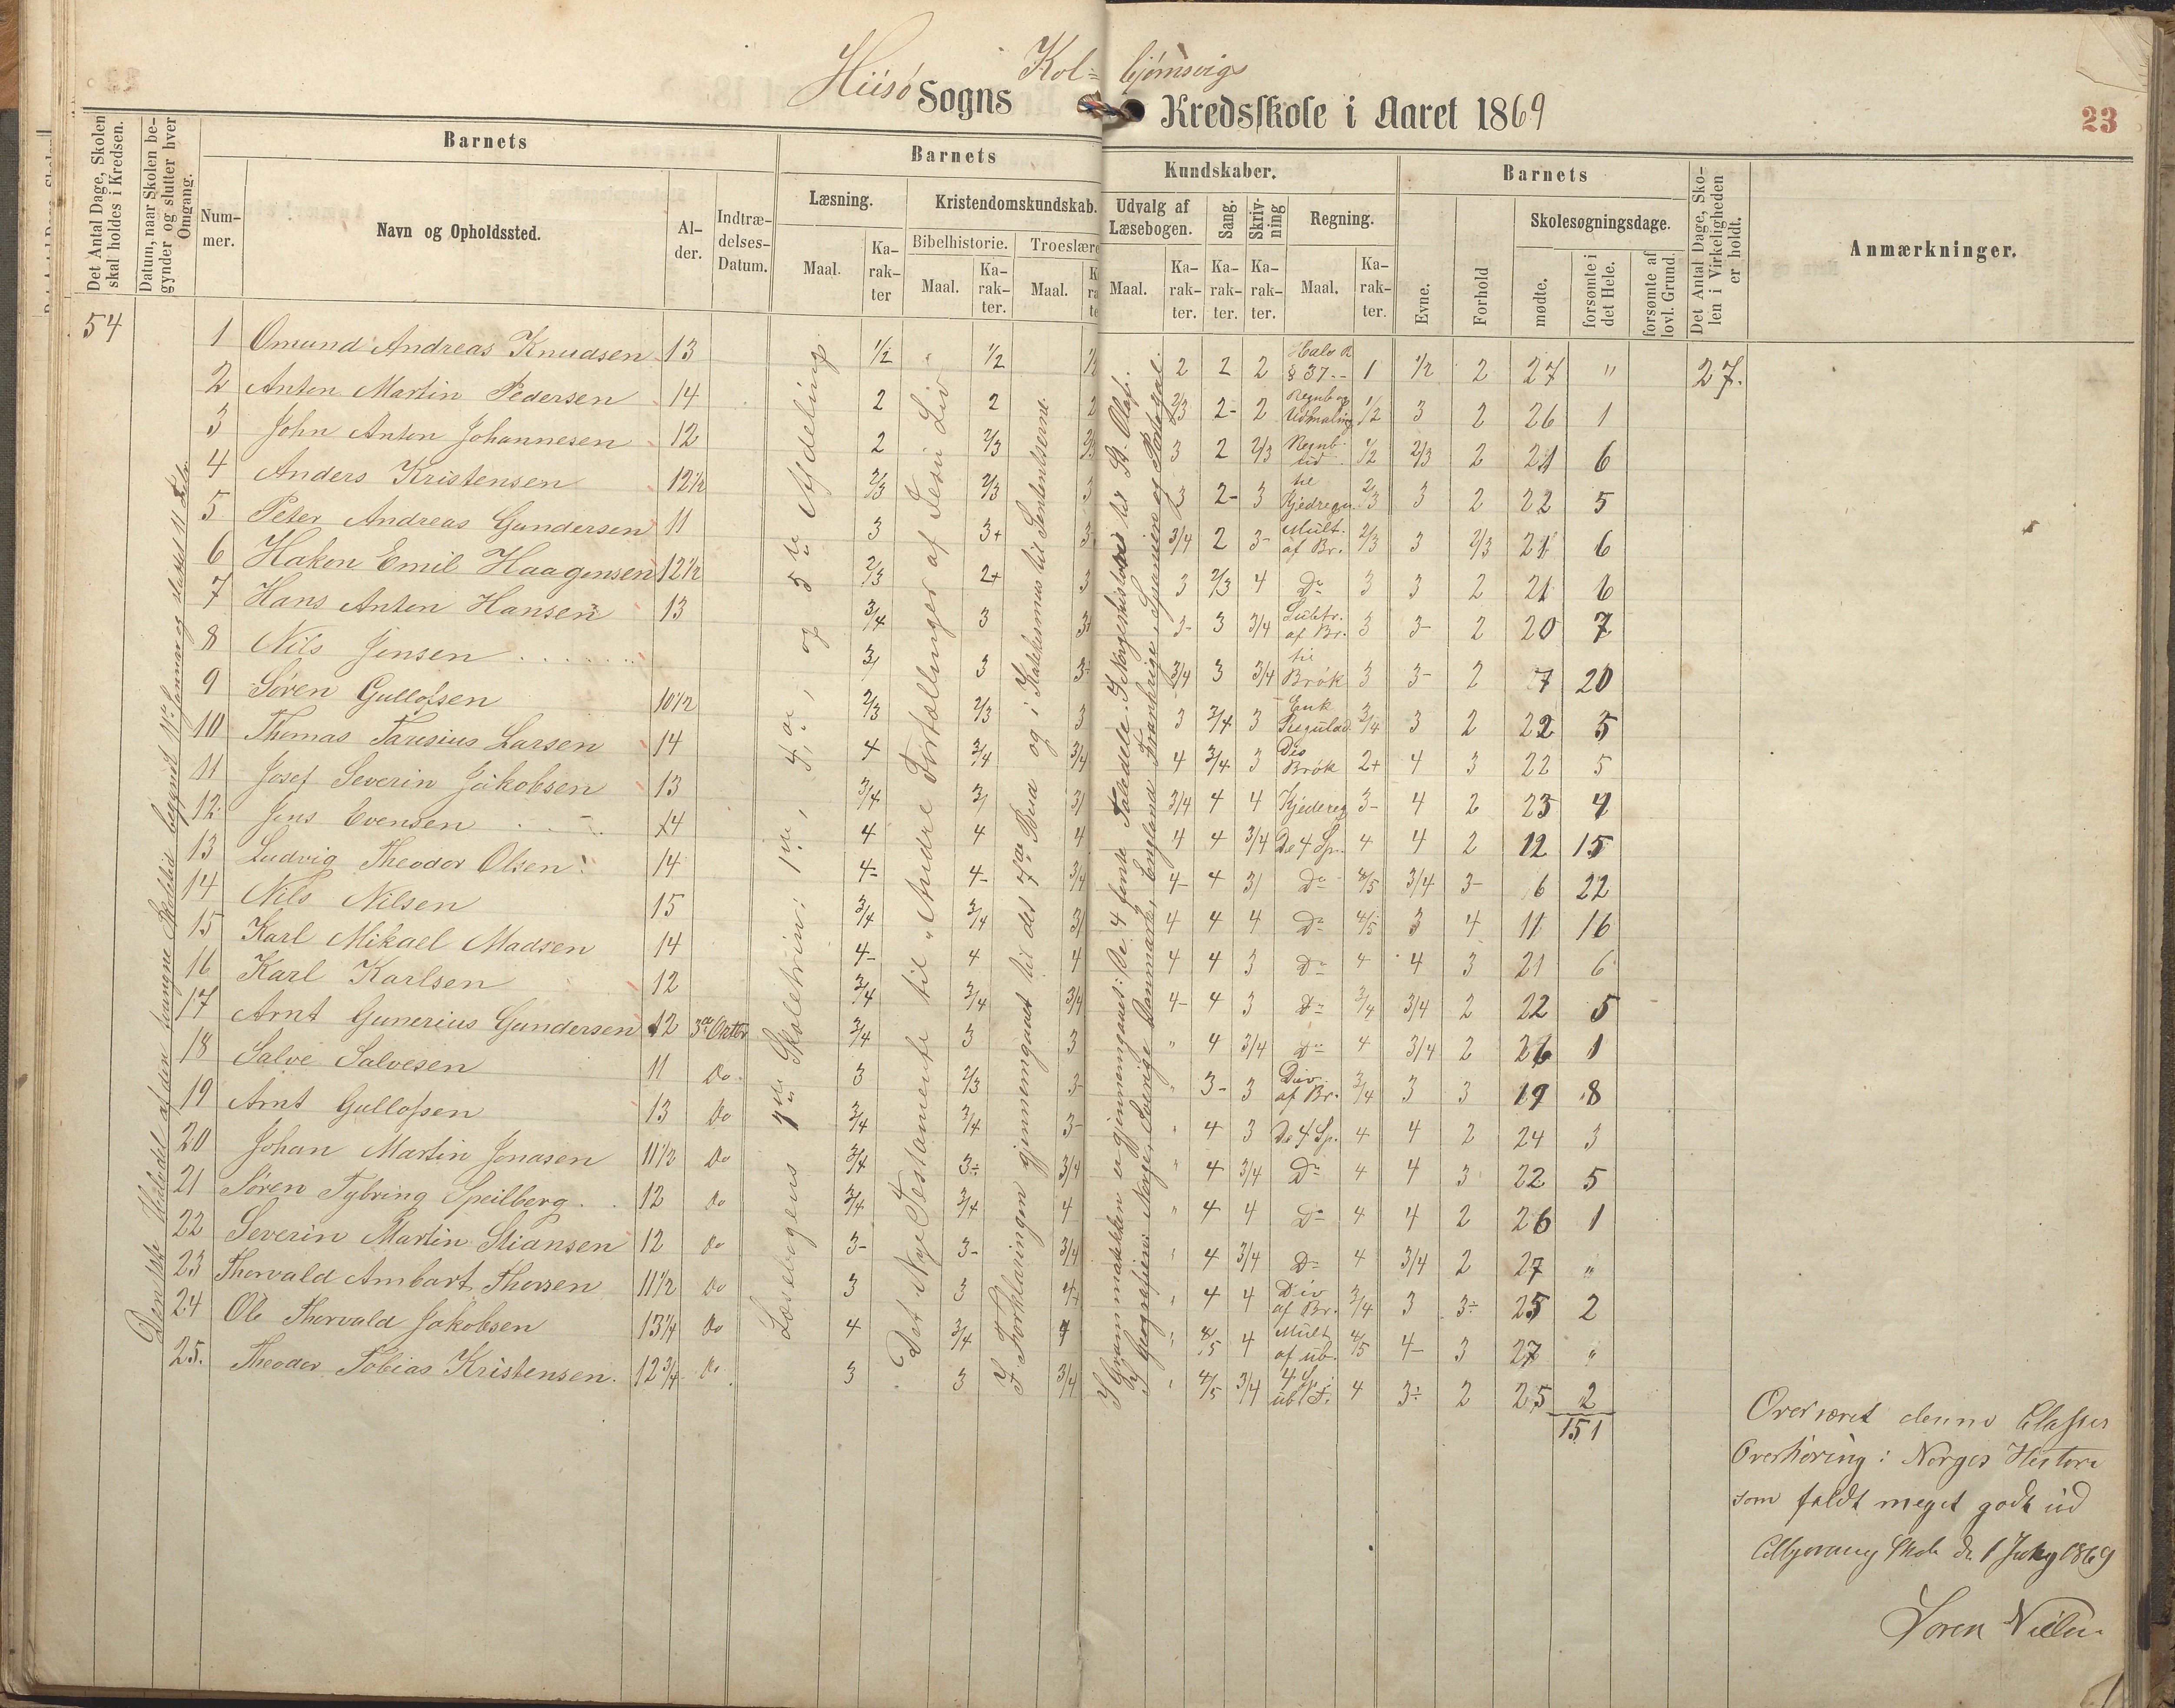 Hiisø Sogns Kol= bjørnsvigs Kredsskole i Aaret 1869
23
Det Antal Dage, Skolen skal holdes i Kredsen.
Datum, naar Skolen begynder og slutter hver Omgang.
Barnets
Nummer.
Navn og Opholdssted.
Alder.
Indtrædelses-Datum.
Barnets Kundskaber.
Læsning.
Maal.
Karakter
Kristendomskundskab.
Bibelhistorie.
Maal.
Karakter.
Troeslære
Maal.
Udvalg af Læsebogen.
Maal.
Karakter.
Sang.
Karakter.
Skrivning
Karakter.
Regning.
Maal.
Karakter.
Barnets
Evne.
Forhold
Skolesøgningsdage.
mødte.
forsømte i det Hele.
forsømte af lovl. Grund.
Det Antal Dage, Skolen i Virkeligheden er holdt.
Anmærkninger.
54
Læsebogens 1ste Skoletrin: 1ste, 4de, og 5te Afdeling
Det Nye Testamente til "Andre Fortællinger af Jesu Liv
I Forklaringen gjennemgaaet til des 7de Bud og i Katekismus til Sententserne.
I Grammatikken er gjennemgaaet: De 4 første Taledele. I Norgeshistorie til St. Olaf.
I Geografien: Norge, Sverige, Danmark, England, Frankrige, Spanien og Portugal.
1 Omund Andreas Knudsen 13 1/2 " 1/2 2 2 2 Halv R § 37-- 1 1/2 2 27 " 27.
2 Anton Martin Pedersen 14 2 2 2 2/3 2- 2 Regnb og Udmaling 1/2 3 2 26 1
3 John Anton Johannesen 12 2 2/3 2/3 3 2 2/3 Regnb. ud 1/2 2/3 2 21 6
4 Anders Kristensen 12 1/2 2/3 2/3 3 3 2- 3 til Kjedregn. 2/3 3 2 22 5
5 Peter Andreas Gundersen 11 3 3+ 3 3/4 2 3- Mult. af Br. 2/3 3 2/3 21 6
6 Hakon Emil Haagensen 12 1/2 2/3 2+ 3 3 2/3 4 Do 3 3 2 21 6
7 Hans Anton Hansen 13 3/4 3 3 3- 3 3/4 Subtr. af Br. 3 3- 2 20 7
8 Nils Jensen . . . . . . 3 3 3- 3/4 3 3/4 til Brøk 3 3- 2 7 20
9 Søren Gullofsen 10 1/2 2/3 2/3 3 3 3/4 3 Enk Regulad 3/4 3 2 22 5
10 Thomas Taresius Larsen 14 4 3/4 3/4 4 3/4 3 Brøk 2+ 4 3 22 5
11 Josef Severin Jakobsen 13 3/4 3 3 3/4 4 4 Kjedereg 3- 4 2 23 4
12. Jens Evensen . . . 14 4 4 4 4 4 3/4 De 4 Sp. 4 4 2 12 15
13 Ludvig Theodor Olsen 14 4- 4- 3/4 4- 4 3 Do 4/5 3/4 3- 6 22
14 Nils Nilsen 15 3/4 3/4 3 4 4 4 Do 4/5 3 4 11 16
15 Karl Mikael Madsen 14 4- 4 4 4 4 3 Do 4 4 3 21 6
16 Karl Karlsen 12 3/4 3/4 3/4 4- 4 3 Do 3/4 3/4 2 22 5
17 Arnt Gunerius Gundersen 12 3die Oktbr 3/4 3 3 " 4 3/4 Do 4 3/4 2 26 1
18 Salve Salvesen 11 Do. 3 2/3 3- " 3- 3 Div. af Br. 3/4 3 3 19 8
19 Arnt Gullofsen 13 Do 3/4 3/4 3- " 4 3 De 4 Sp. 4 4 2 24 3
20 Johan Martin Jonasen 11 1/2 Do 3/4 3÷ 3/4 " 4 3/4 Do 4 4 3 22 5
21 Søren Tybring Speilberg . . 12 Do 3/4 3/4 4 " 4 4 Do 4 4 2 26 1
22 Severin Martin Stiansen 12 Do 3- 3- 3/4 " 4 3/4 Do 4 3/4 2 27 "
23 Thorvald Ambart Thorsen 11 1/2 Do 3 3 4+ " 4 4 Div af Br. 3/4 3 3÷ 25 2
24 Ole Thorvald Jakobsen 13 1/4 Do 4 3/4 4 " 4/5 4 Mult af ub. 4/5 4- 3 27 "
25. Theodor Tobias Kristensen. 12 3/4 Do 3 3 3/4 " 4/5 3/4 4 3÷ 2 25 2
151
Overværet denne Classes
Overhøring i Norges Historie
som faldt meget godt ud
Skole d. 1 1869
Søren Nielsen